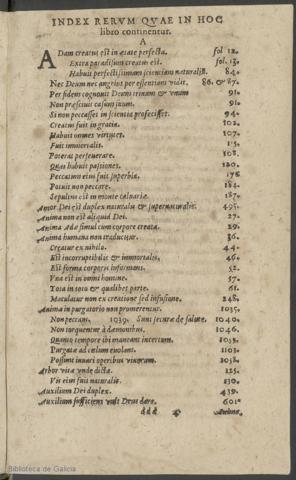 INDEX RERVM QVAE IN HOC
libro continentur.
A
ADam creatus est in ætate perfecta. fol. 12.
Extra paradisum creatus est. fol. 13.
Habuit perfectissimam scienciam naturalem. 84.
Nec Deum nec angelos per essentiam vidit. 86. & 87.
Per fidem cognouit Deum trinum & vnum 91.
Non præsciuit casum suum. 91.
Si non peccasset in scientia profecisset. 94.
Creatus fuit in gratia. 102.
Habuit omnes virtutes. 107.
Fuit immortalis.
Poterat perseuerare. 108.
Quas habuit passiones. 120.
Peccatum eius fuit superbia. 178
Potuit non peccare. 184.
Sepultus est in monte caluariæ. 187.
Amor Dei est duplex naturalis & supernaturalis. 495.
Anima non est aliquid Dei. 27.
Anima Adæ simul cum corpore creata. 29.
Anima humana non traducitur. 36.
Creatur ex nihilo. 44.
Est incorruptibilis & immortalis. 46.
Est forma corporis informans. 52.
Vna est in omni homine. 57.
Tota in toto & qualibet parte. 61.
Maculatur non ex creatione sed infusione. 248.
Anima in purgatorio non promerentur. 1035.
Non peccant. 1039. Sunt securæ de salute. 1040.
Non torquentur à dæmonibus. 1046.
Quanto tempore ibi maneant incertum. 1035.
Purgatæ ad cælum euolant. 1103.
Possunt iuuari operibus viuorum. 1058.
Arbor vitæ vnde dicta. 125.
Vis eius fuit naturalis. 130.
Auxilium Dei duplex. 439.
Auxilium sufficiens vult Deus dare. 601
ddd
Biblioteca de Galicia